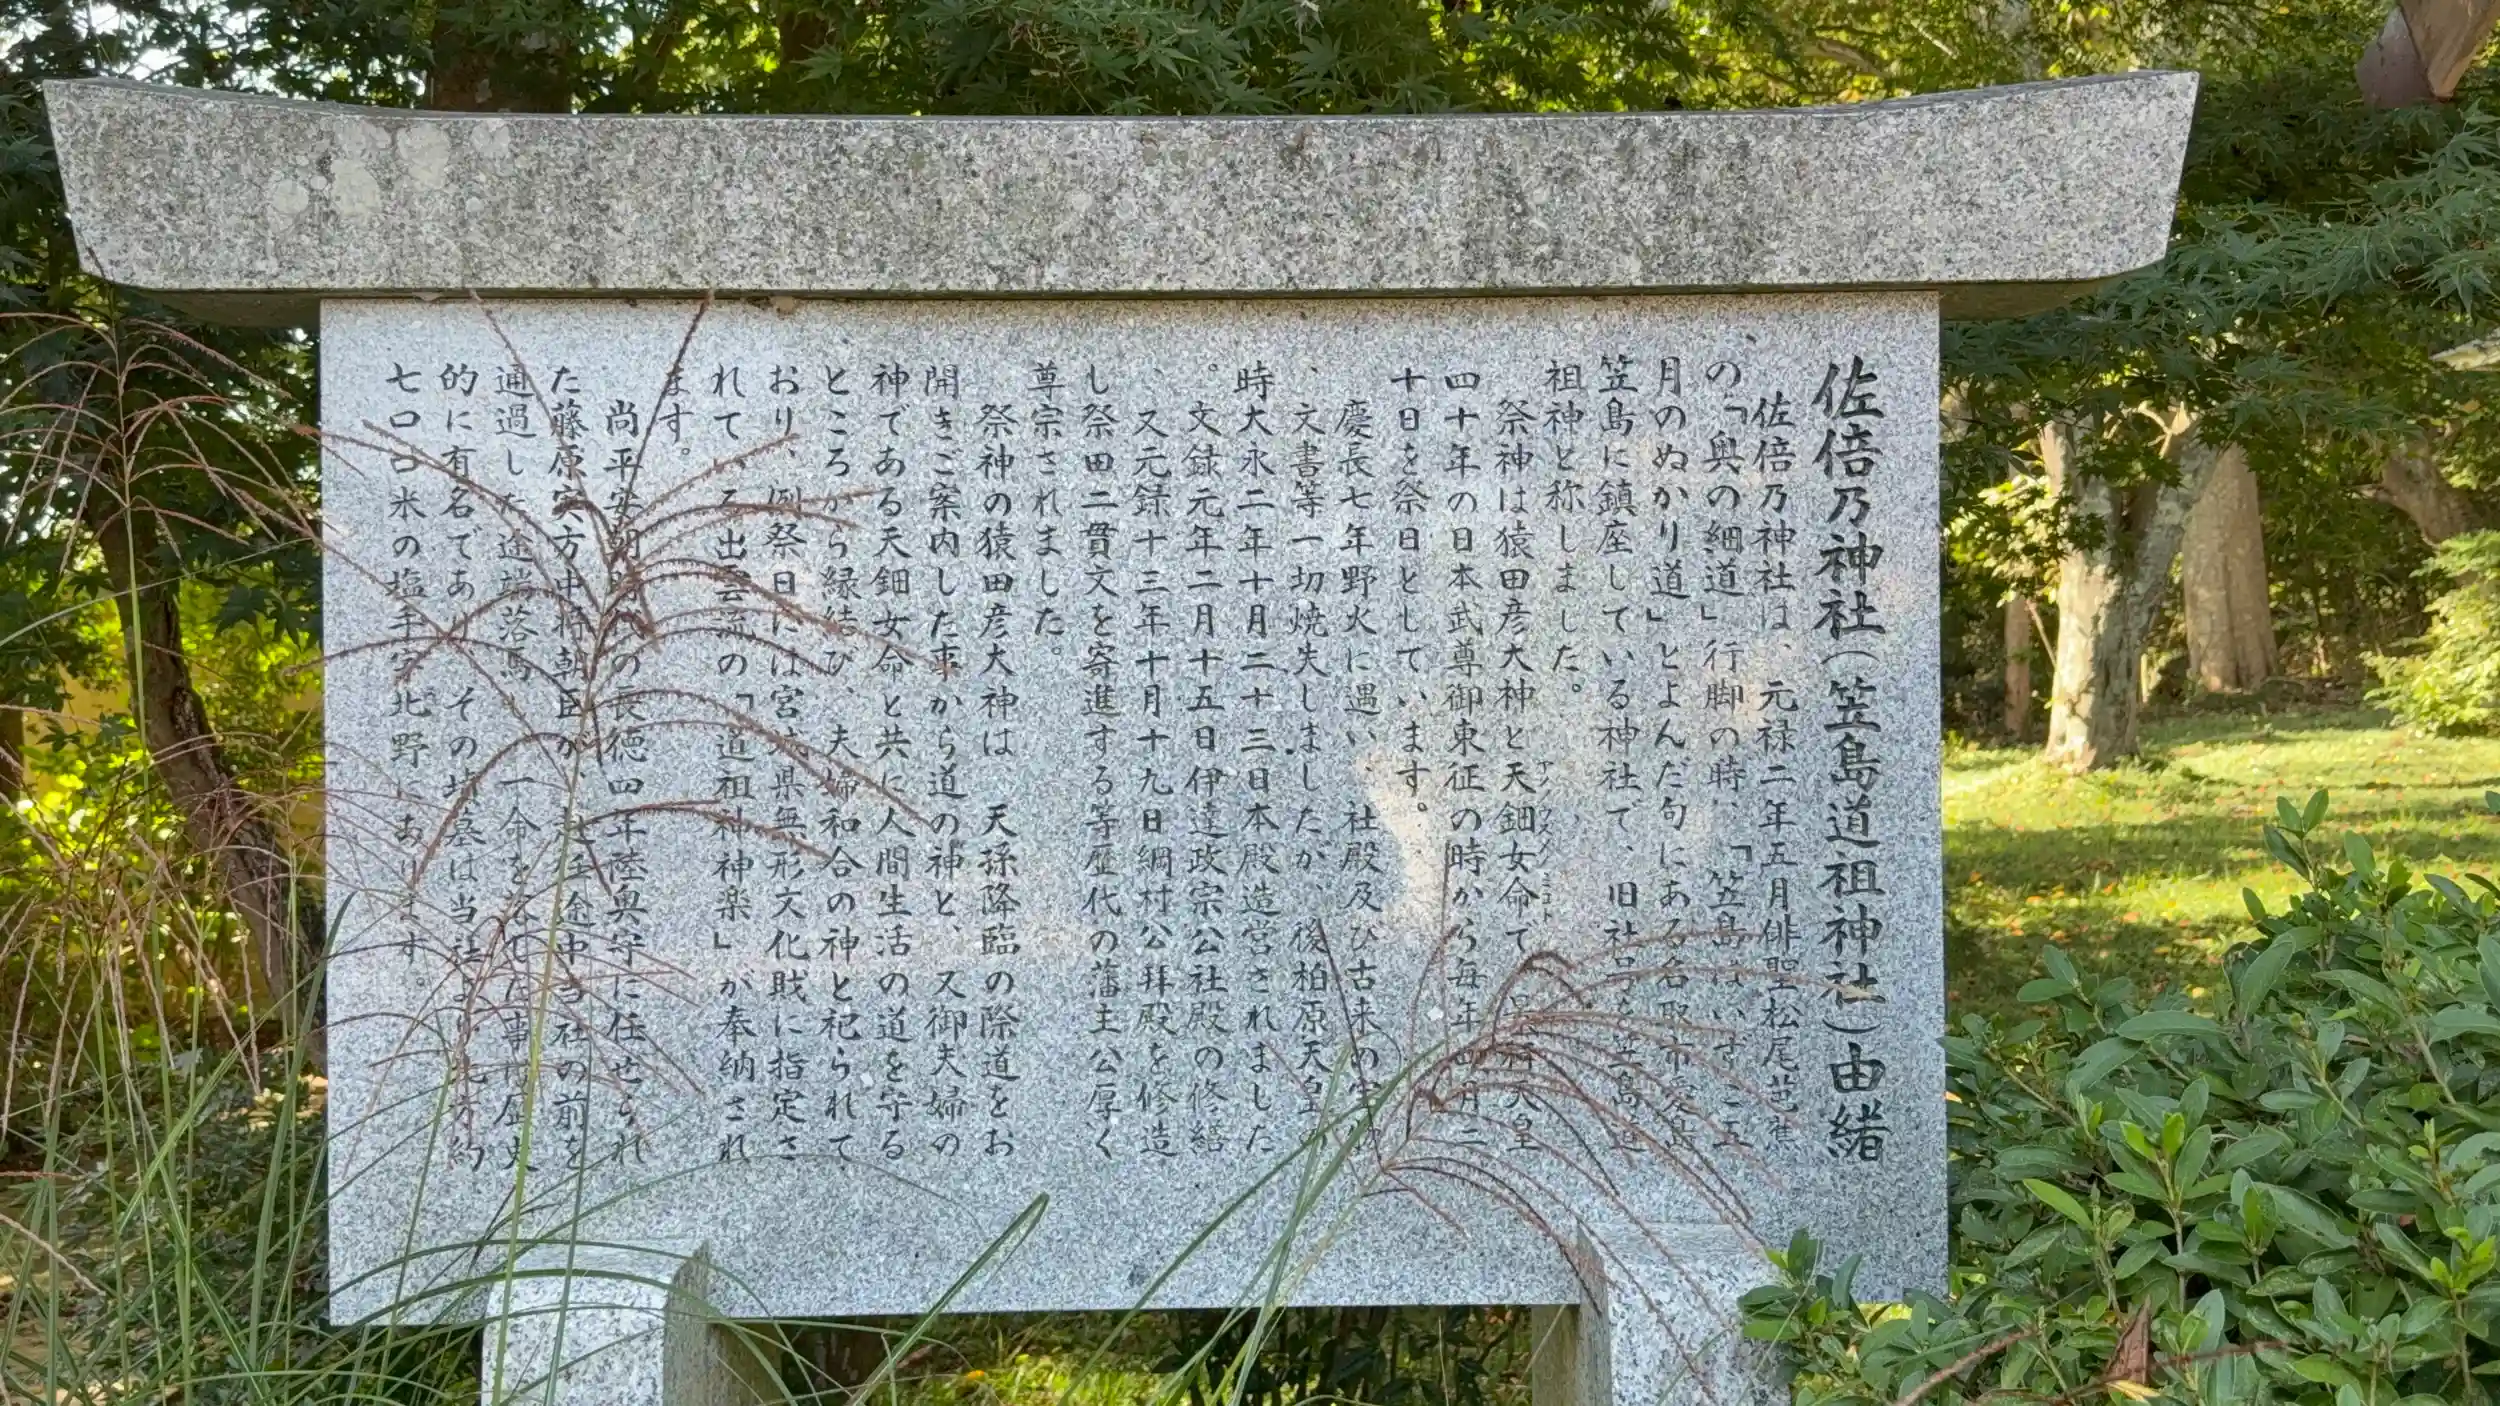 佐倍乃神社(笠島道祖神社)由緒
佐倍乃神社は、元禄二年五月俳聖松尾芭蕉
の「奥の細道」行脚の時、「笠島はいずこ五
月のぬかり道」とよんだ句にある名取市愛島
笠島に鎮座している神社で、旧社号を笠島道
祖神と称しました。
祭神は猿田彦大神と天鈿女命で 天皇
四十年の日本武尊御東征の時から毎年四月二
十日を祭日としています。
慶長七年野火に遇い、社殿及び古来の宝物
、文書等一切焼失しましたが、後柏原天皇の
時大永二年十月二十三日本殿造営されました
。文録元年二月十五日伊達政宗公社殿の修繕
、又元録十三年十月十九日綱村公拝殿を修造
し祭田二貫文を寄進する等歴代の藩主公厚く
尊宗されました。
祭神の猿田彦大神は、天孫降臨の際道をお
開きご案内した事から道の神と、又御夫婦の
神である天鈿女命と共に人間生活の道を守る
ところから縁結び、夫婦和合の神と祀られて
おり、例祭日には宮城県無形文化財に指定さ
れている出雲流の「道祖神神楽」が奉納され
ます。
尚平安朝時代の長徳四年陸奥守に任せられ
た藤原実方中将朝臣が、 任途中当社の前を
通過した途端落馬 一命を した事は歴史
的に有名であり、その墳墓は当社より北方約
七口口米の塩手字北野にあります。